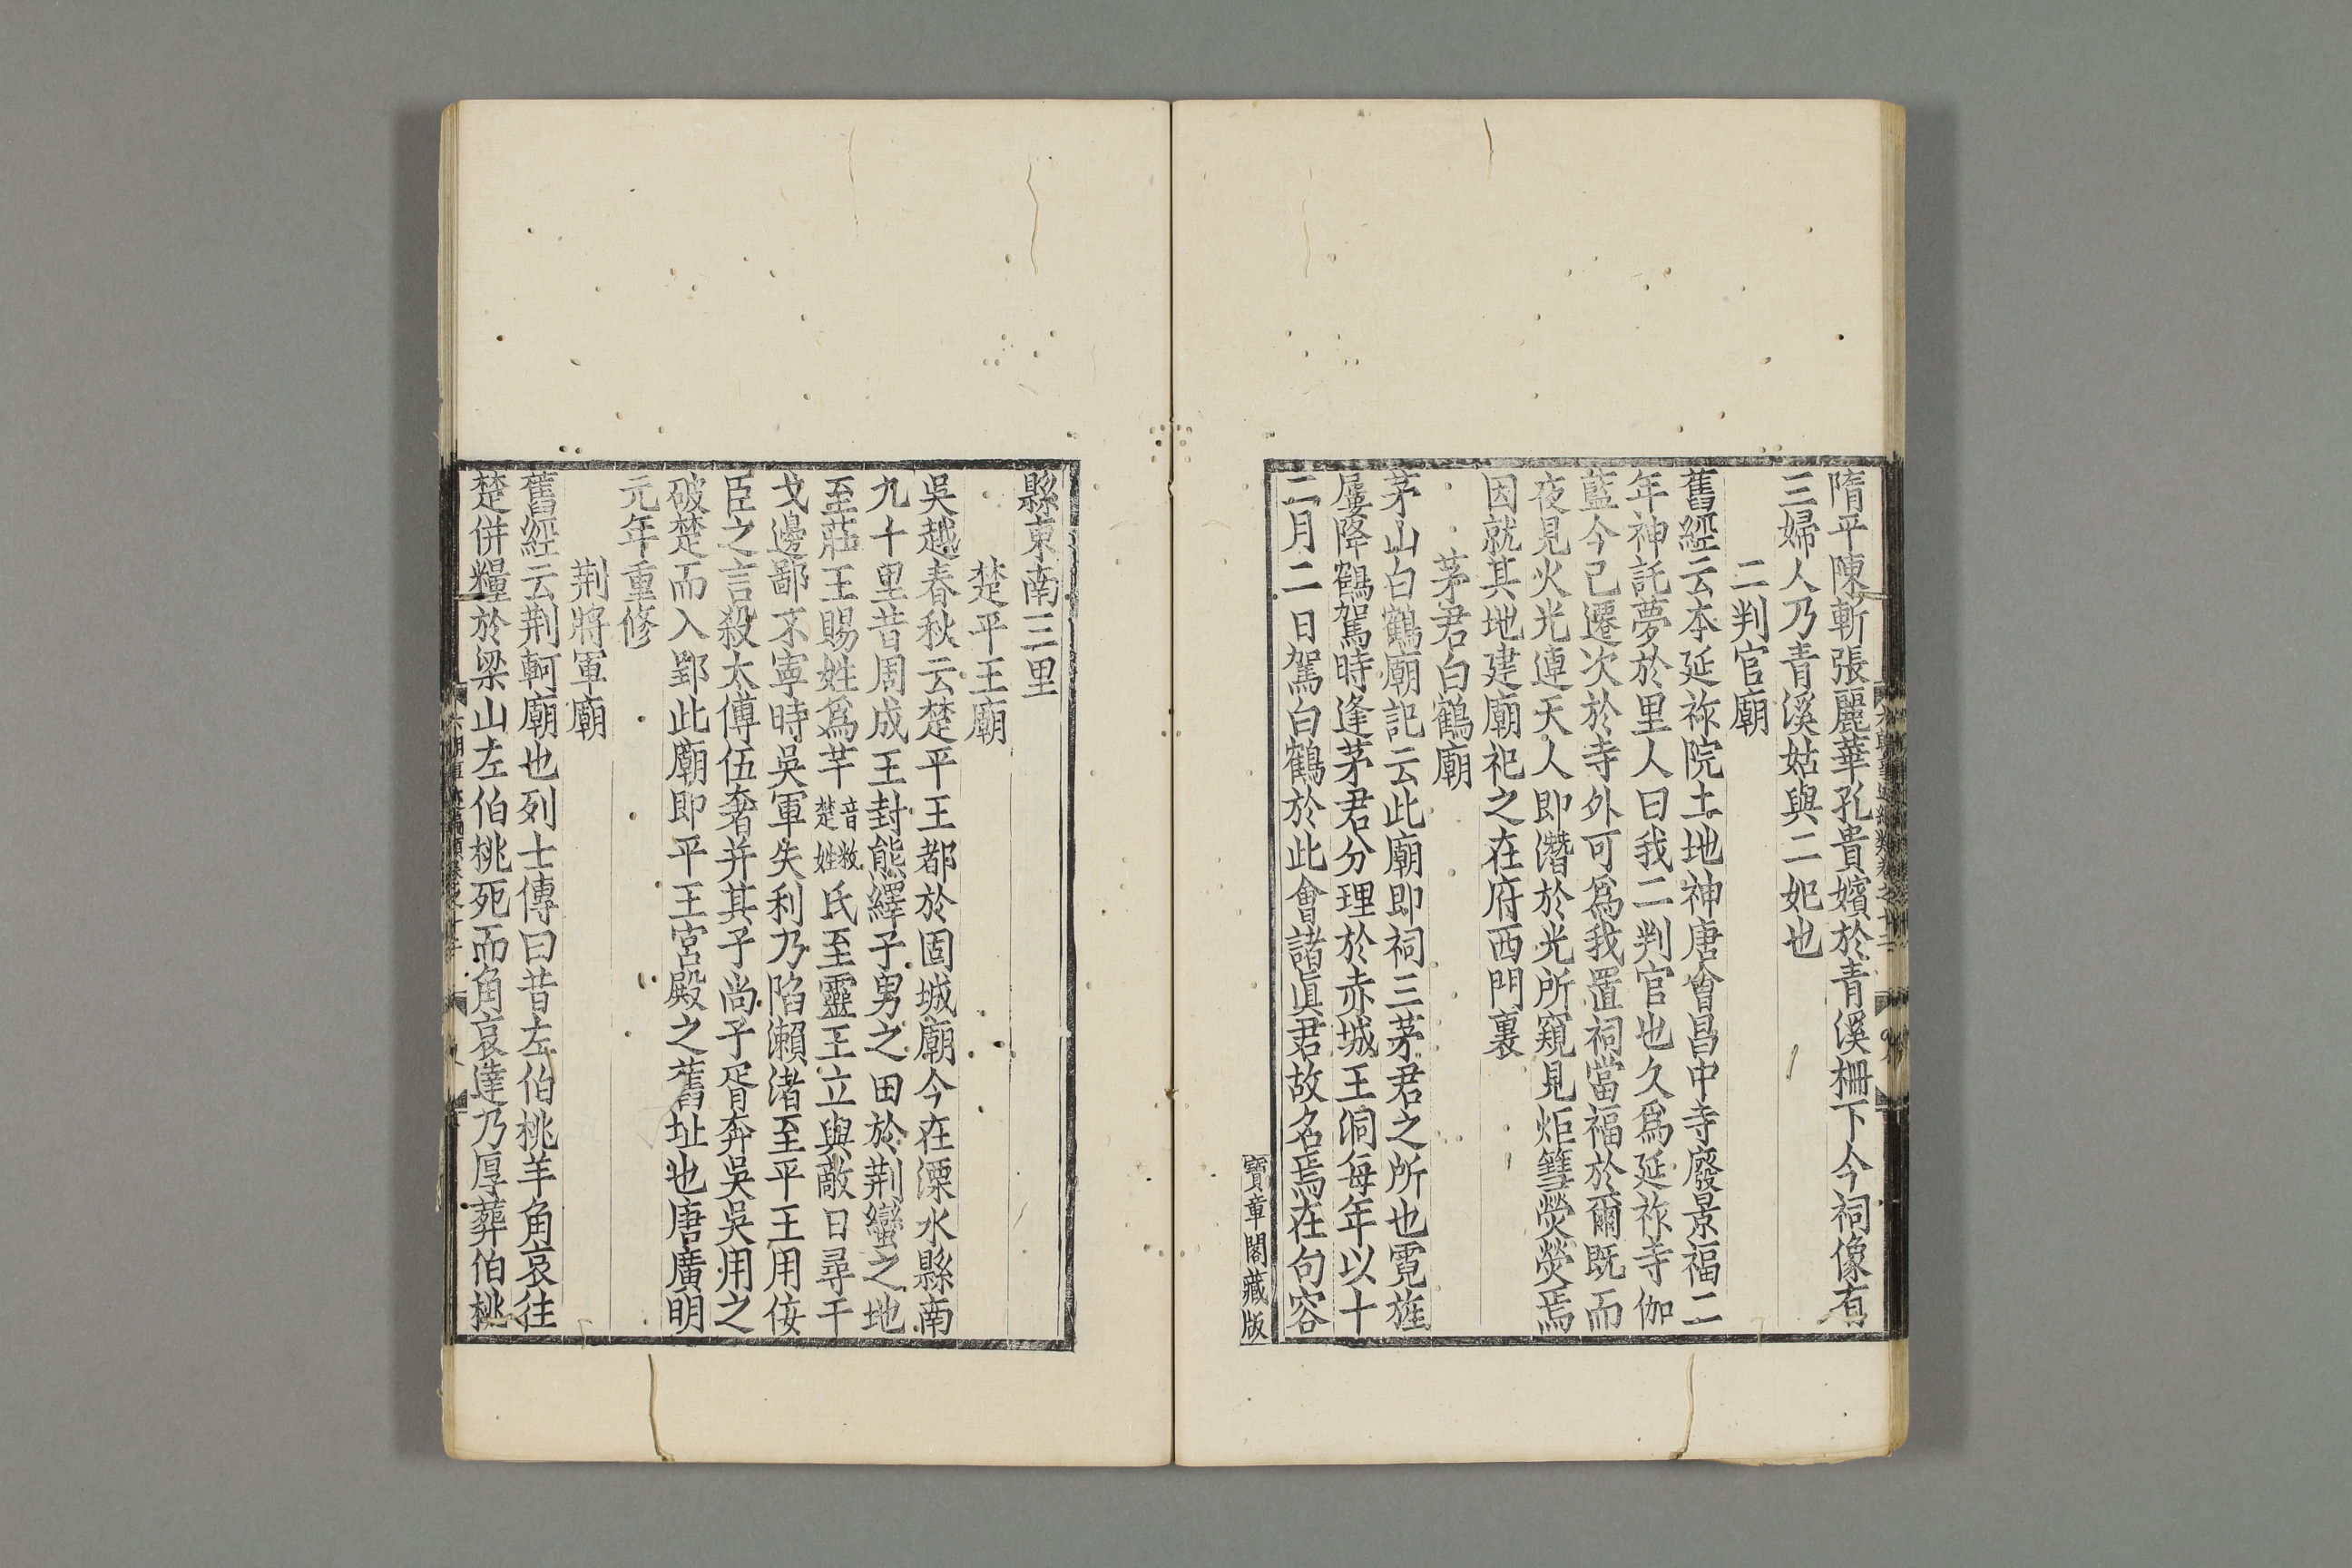 隋平陳斬張麗華孔貴嬪於青溪柵下今祠像有
三婦人乃青溪姑與二妃也
二判官廟
舊經云本延祚院土地神唐會昌中寺廢景福二
年神託夢於里人曰我二判官也久爲延祚寺伽
藍今已遷次於寺外可爲我置祠當福於爾既而
夜見火光連天人即潛於光所窺見炬篲熒熒焉
因就其地建廟祀之在府西門裏
茅君白鶴廟
茅山白鶴廟記云此廟即祠三茅君之所也霓旌
屢降鶴駕時逢茅君分理於赤城王洞每年以十
二月二日駕白鶴於此會諸眞君故名焉在句容
寶章閣藏版
縣東南三里
楚平王廟
吳越春秋云楚平王都於固城廟今在溧水縣南
九十里昔周成王封熊繹子男之田於荆蠻之地
至莊王賜姓爲芊音敉楚姓氏至靈王立與敵日尋干
戈邊鄙不寧時吳軍失利乃陷瀨渚至平王用佞
臣之言殺太傅伍奢并其子尚子胥奔吳吳用之
破楚而入郢此廟即平王宮殿之舊址也唐廣明
元年重修
荆將軍廟
舊經云荆軻廟也列士傳曰昔左伯桃羊角哀往
楚併糧於梁山左伯桃死而角哀達乃厚葬伯桃